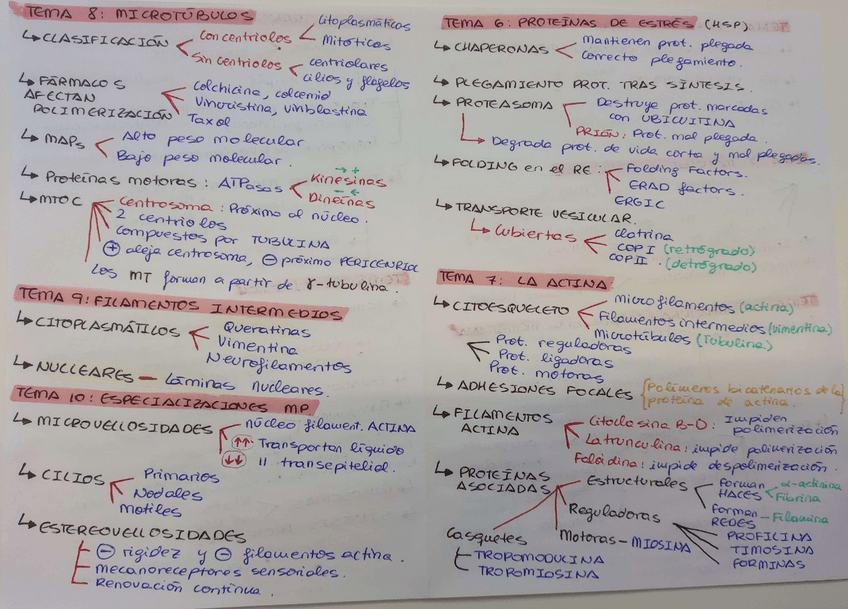 TEMA 8: MICROTÚBULOS
↳CLASIFICACIÓN
Con centriolos
Citoplasmáticos
Mitóticos
Sin centriolos
centriolares
cilios y flagelos
↳FÁRMACOS
AFECTAN
POLIMERIZACIÓN
Colchicina, colcemid
Vincristina, vinblastina
Taxol
↳MAPs
Alto peso molecular
Bajo peso molecular.
↳Proteínas motoras: ATPasas
Kinesinas
Dineínas
↳MTOC
Centrosoma: Próximo al núcleo.
2 centriolos
Compuestos por TUBULINA
⊕ aleja centrosoma, ⊖ próximo PERICENTRIOL
Los MT forman a partir de γ-tubulina.
TEMA 9: FILAMENTOS INTERMEDIOS
↳CITOPLASMÁTICOS
Queratinas
Vimentina
Neurofilamentos
↳NUCLEARES — Láminas nucleares.
TEMA 10: ESPECIALIZACIONES MP.
↳MICROVELLOSIDADES
núcleo filament. ACTINA
↑↑ Transportan líquido
↓↓ 11 transepitelial.
↳CILIOS
Primarios
Nodales
Motiles
↳ESTEREOVELLOSIDADES
⊖ rigidez y ⊖ filamentos actina.
mecanoreceptores sensoriales.
Renovación continua.
TEMA 6: PROTEÍNAS DE ESTRÉS (HSP)
↳CHAPERONAS
Mantienen prot. plegada
Correcto plegamiento.
↳PLEGAMIENTO PROT. TRAS SÍNTESIS.
↳PROTEASOMA
Destruye prot. marcadas
con UBICUITINA
PRIÓN: Prot. mal plegada.
Degrada prot. de vida corta y mal plegadas.
↳FOLDING en el RE:
Folding Factors.
ERAD factors.
ERGIC
↳TRANSPORTE VESICULAR.
↳Cubiertas
Clatrina
COP I (retrógrado)
COP II. (detrógrado)
TEMA 7: LA ACTINA
↳CITOESQUELETO
Microfilamentos (actina)
Filamentos intermedios (vimentina)
Microtúbulos (Tubulina)
Prot. reguladoras
Prot. ligadoras
Prot. motoras
↳ADHESIONES FOCALES {Polímeros bicatenarios de la
proteína de actina.
↳FILAMENTOS
ACTINA
Citoclasina B-D: Impiden
polimerización
Latrunculina: impide polimerización
Faloidina: impide despolimerización.
↳PROTEÍNAS
ASOCIADAS
Estructurales
Forman
HACES
α-actinina
Fibrina
Forman
REDES
-Filamina
Reguladoras
PROFILINA
TIMOSINA
FORMINAS
Motoras-MIOSINA
Casquetes
TROPOMODULINA
TROPOMIOSINA